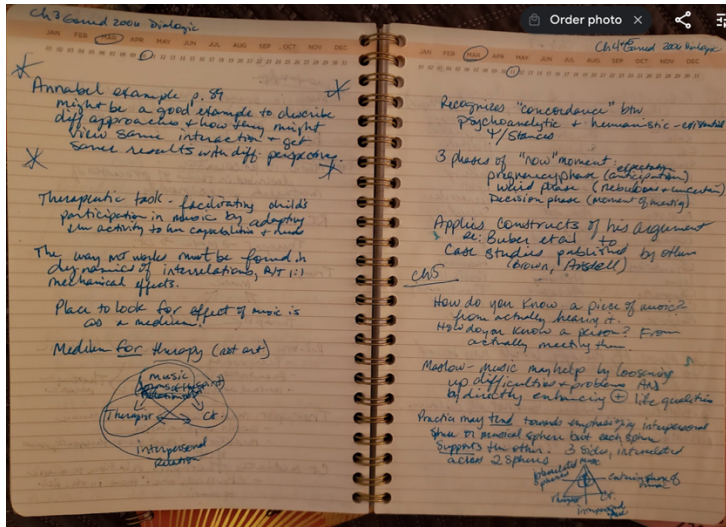 Order photo
Ch 3 Garred 2004 Dialogic
JAN FEB MAR APR MAY JUN JUL AUG SEP OCT NOV DEC
Annabel example p. 89
might be a good example to describe
diff approaches + how they might
view same interaction + get
same results with diff. perspective.
Therapeutic task - facilitating child's
participation in music by adapting
the activity to her capabilities + needs
The way MT works must be found in
dynamics of interrelations, 1:1
mechanical effects.
Place to look for effect of music is
as a medium.
Medium for therapy (not art)
music
Therapist
interpersonal
relation
JAN FEB MAR APR MAY JUN JUL AUG SEP OCT NOV DEC
Garred 2004 Dialogic
Recognizes "concordance" btw
psychoanalytic + humanistic - existential
stances
3 phases of "now" moment: expectation
pregnancy phase (anticipation)
weird phase (nebulous + uncertain)
Decision phase (moment of meeting)
Applies constructs of his argument
re: Buber et al to
Case studies published by others
(Brown, Ansdell)
Ch 5
How do you know a piece of music?
from actually hearing it.
How do you know a person? From
actually meeting them
Maslow - music may help by loosening
up difficulties + problems AND
by directly enhancing + life qualities
Practice may tend towards emphasizing interpersonal
sphere or musical sphere but each sphere
supports the other. 3 sides, interrelated
across 2 spheres
music
Therapist
Ct.
interpersonal